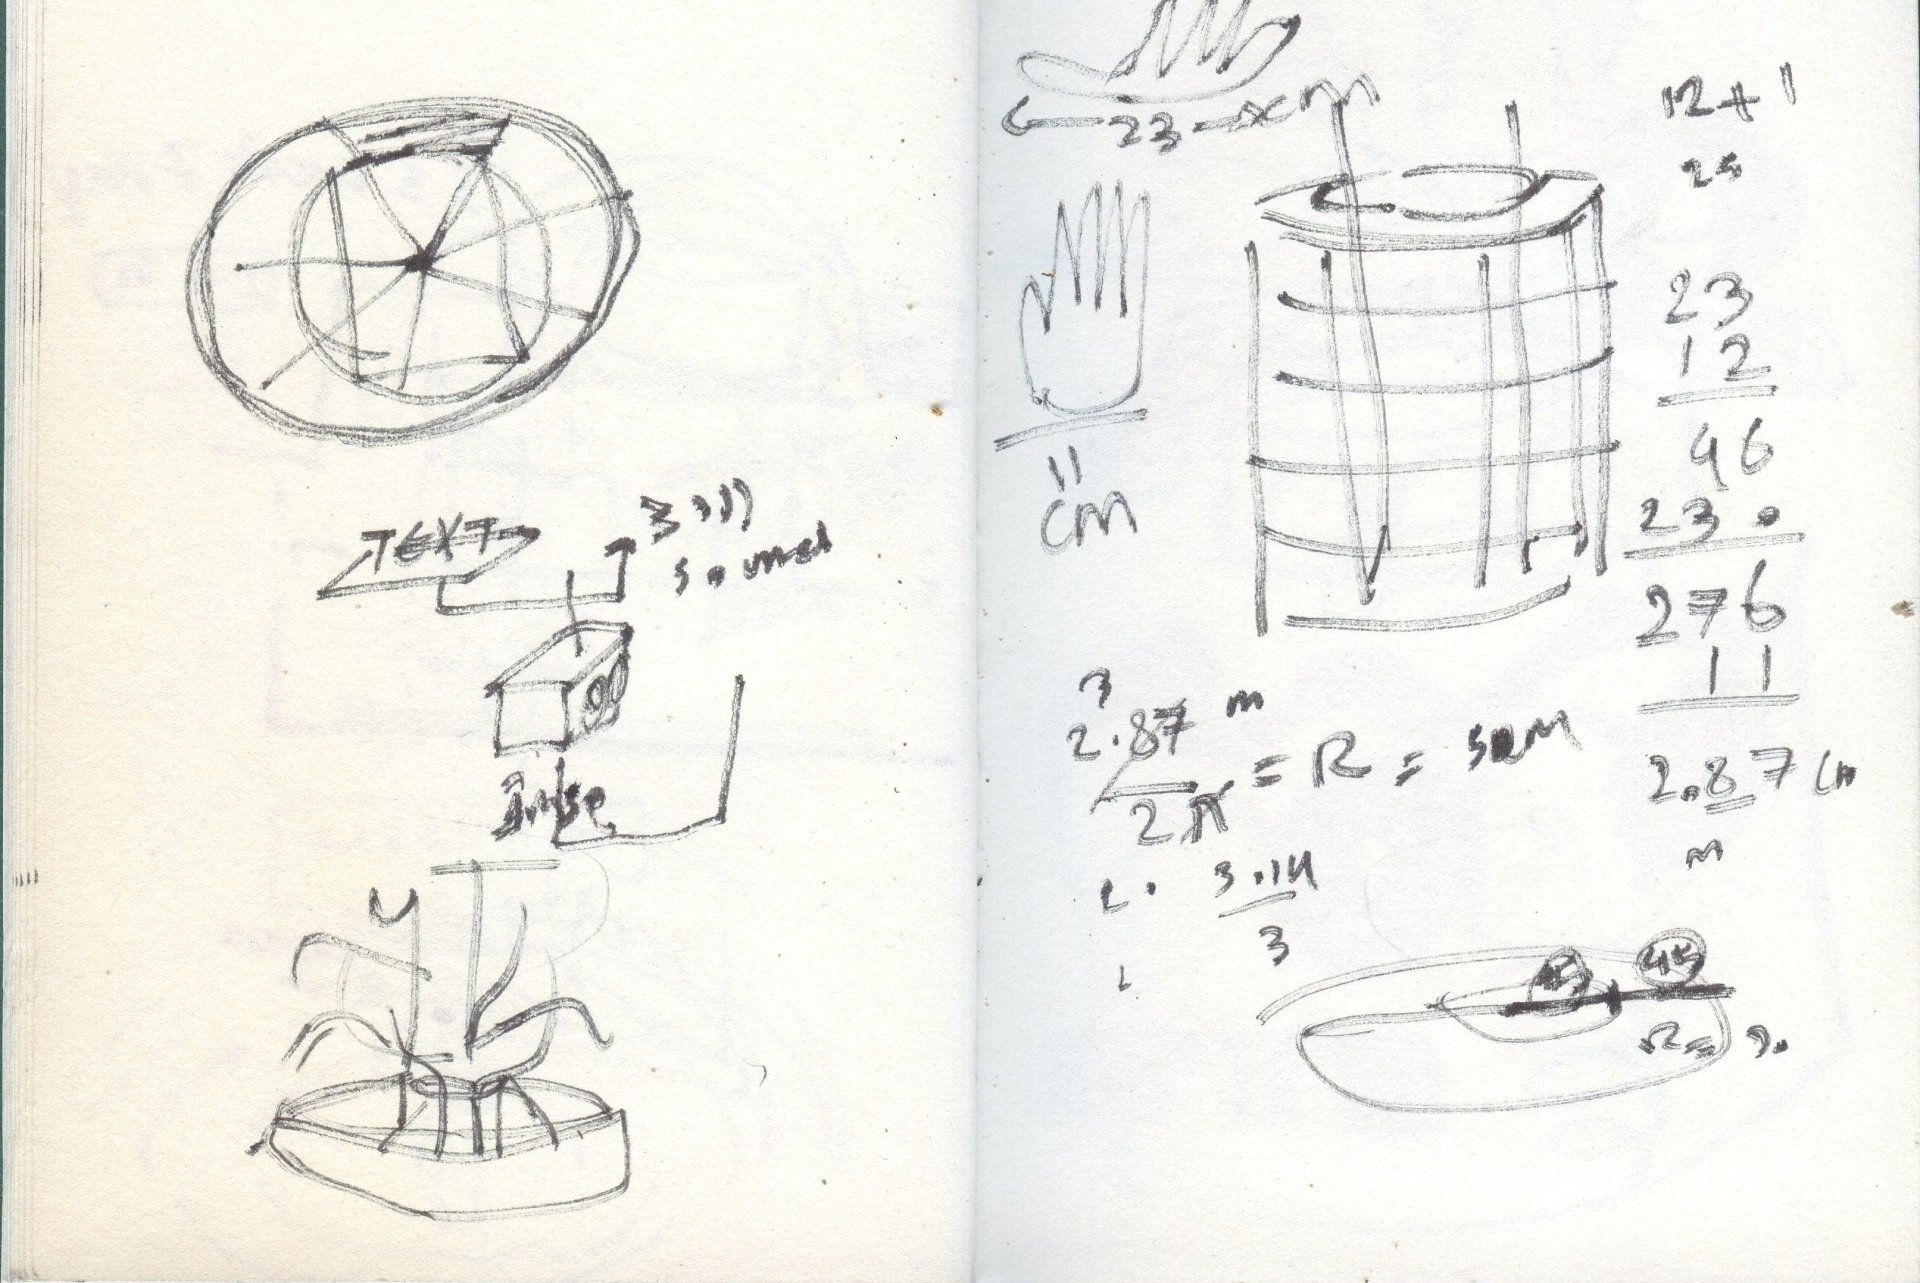 TEXT
sound
23
cm
11
cm
12 + 1
25
23
12
46
230
276
11
2.87 cm
m
3
2.87 m
2π
= R =
3.14
3
45
R =